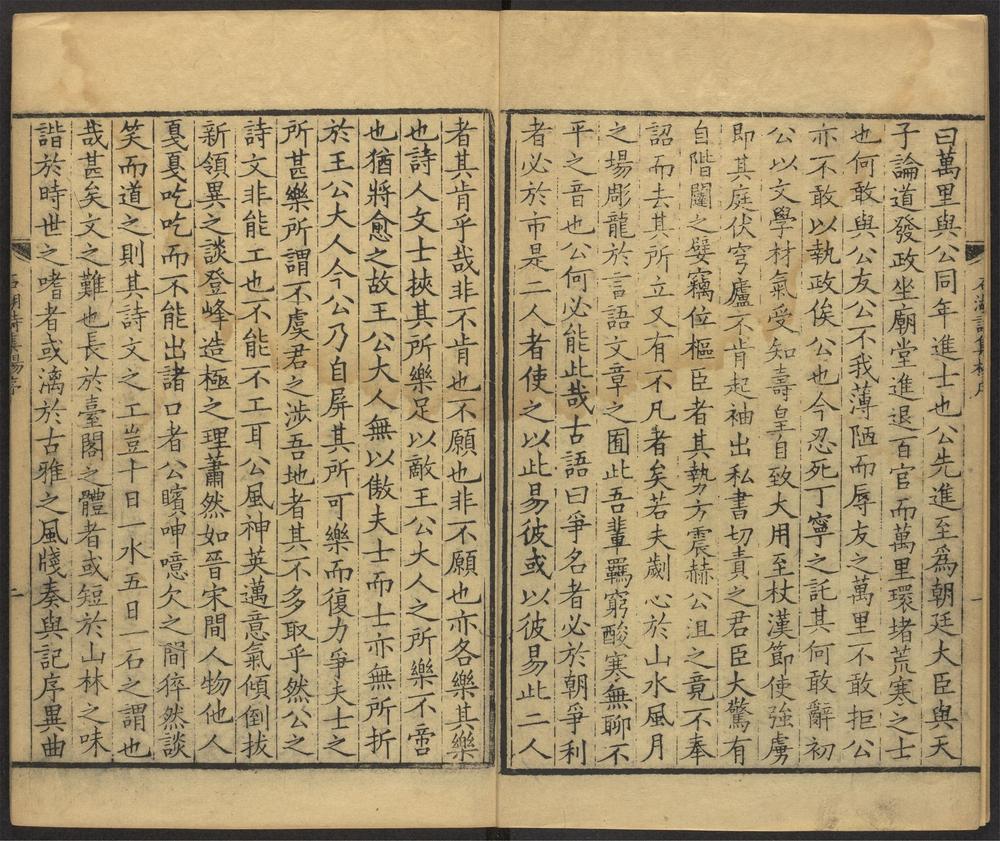 曰萬里與公同年進士也公先進至爲朝廷大臣與天
子論道發政坐廟堂進退百官而萬里環堵荒寒之士
也何敢與公友公不我薄陋而辱友之萬里不敢拒公
亦不敢以執政俟公也今忍死丁寧之託其何敢辭初
公以文學材氣受知壽皇自致大用至杖漢節使強虜
即其庭伏穹廬不肯起袖出私書切責之君臣大驚有
自階闥之嬖竊位樞臣者其勢方震赫公沮之竟不奉
詔而去其所立又有不凡者矣若夫劌心於山水風月
之場彫龍於言語文章之囿此吾輩羈窮酸寒無聊不
平之音也公何必能此哉古語曰爭名者必於朝爭利
者必於市是二人者使之以此易彼或以彼易此二人
者其肯乎哉非不肯也不願也非不願也亦各樂其樂
也詩人文士挾其所樂足以敵王公大人之所樂不啻
也猶將愈之故王公大人無以傲夫士而士亦無所折
於王公大人今公乃自屏其所可樂而復力爭夫士之
所甚樂所謂不虞君之涉吾地者其不多取乎然公之
詩文非能工也不能不工耳公風神英邁意氣傾倒拔
新領異之談登峰造極之理蕭然如晉宋間人物他人
戛戛吃吃而不能出諸口者公矉呻噫欠之間猝然談
笑而道之則其詩文之工豈十日一水五日一石之謂也
哉甚矣文之難也長於臺閣之體者或短於山林之味
諧於時世之嗜者或漓於古雅之風牋奏與記序異曲